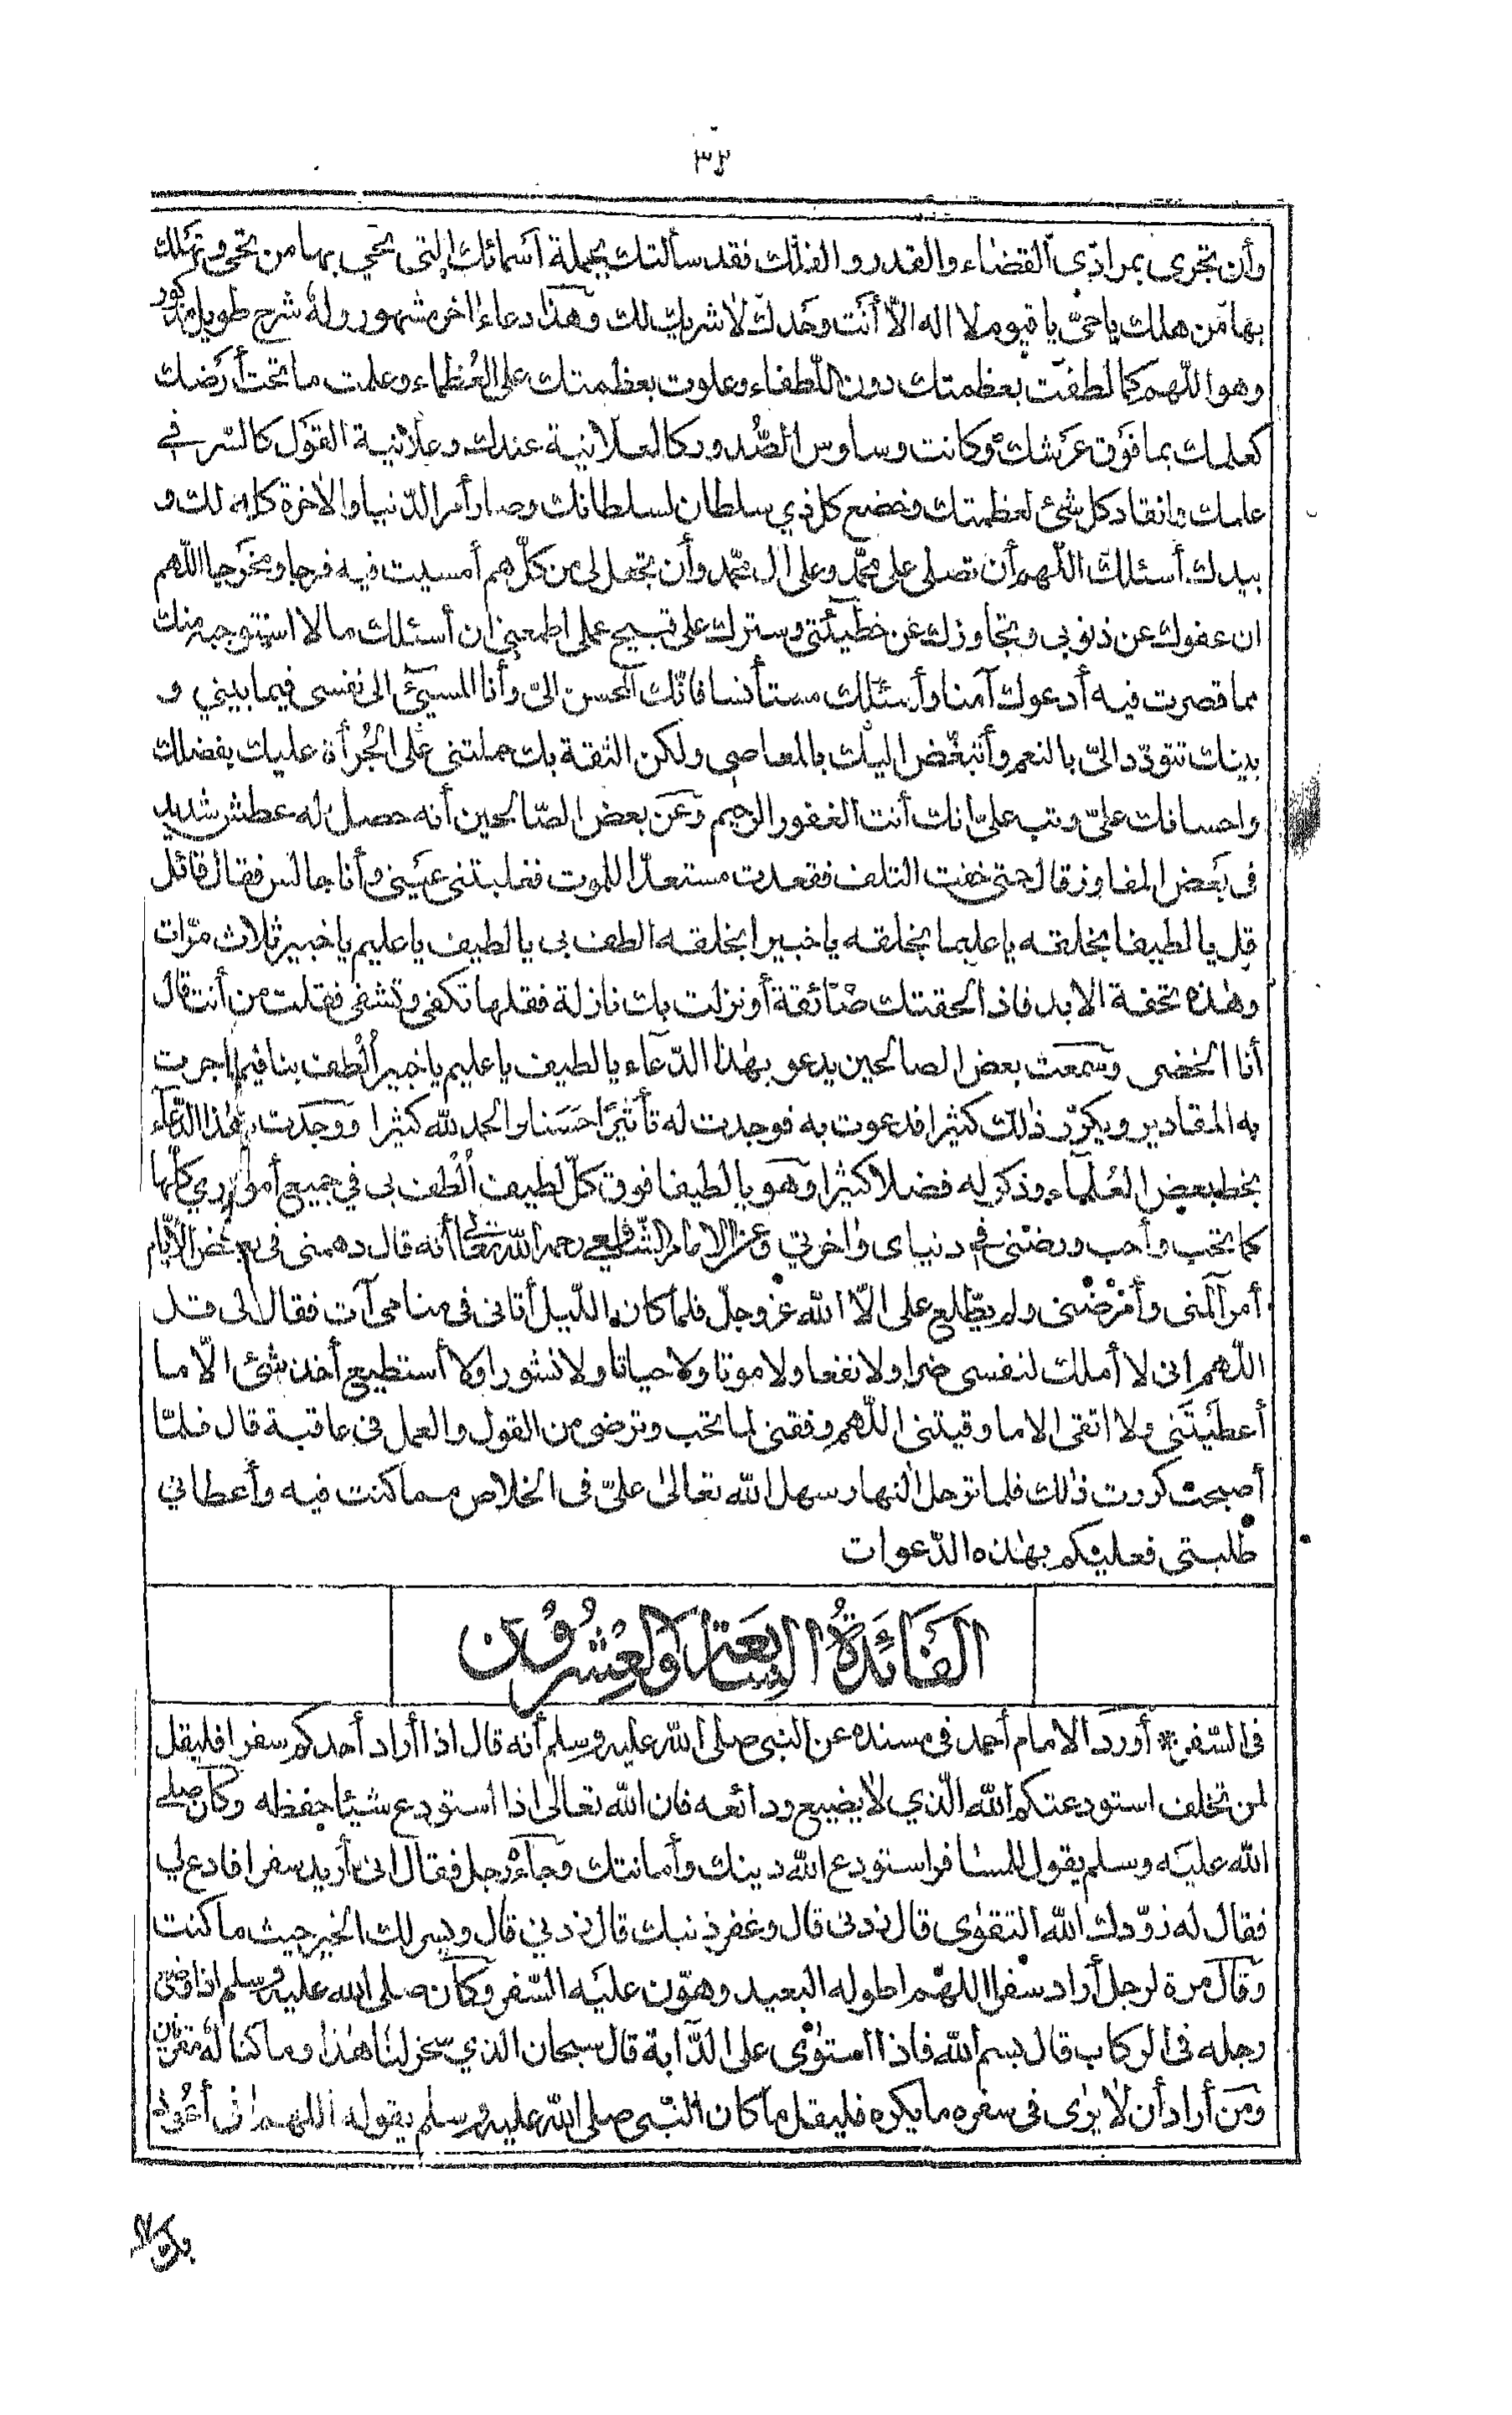 ٣٤
وأن تجرى بمرادى القضاء والقدر والفلك فقد سألتك بجملة أسمائك التى تحي بها من تحى وتهلك
بها من هلك يا حىّ يا قيوم لا اله الّا أنت وحدك لا شريك لك وهذا دعاء اٰخر مشهور وله شرح طويل مذكور
وهو اللّهم كما لطفت بعظمتك دون اللّطفاء وعلوت بعظمتك على العُظماء وعلمت ما تحت أرضك
كعلمك بما فوق عرشك وكانت وساوس الصُّدور كالعلانية عندك وعلانية القول كالسّر في
علمك وانقاد كل شئ لعظمتك وخضع كل ذي سلطان لسلطانك وصار أمر الدّنيا والاٰخرة كله لك و
بيدك أسئلك اللّهم أن تصلى على محمّد وعلى اٰل محمّد وأن تجعل لى من كلّ هم أمسيت فيه فرجا ومخرجا اللّهم
ان عفوك عن ذنوبى وتجاوزك عن خطيئتى وسترك على قبيح عملى اطمعنى ان أسئلك ما لا استوجبه منك
مما قصرت فيه أدعوك آمنا وأسئلك مستأنسا فانّك المحسن الىّ وأنا المسيئ الى نفسى فيما بيني و
بينك تتودّد الىّ بالنعم وأتبغّض اليك بالمعاصى ولكن الثقة بك حملتنى على الجُرأة عليك بفضلك
واحسانك علىّ وتب علىّ انك أنت الغفور الرحيم وعن بعض الصّالحين أنه حصل له عطش شديد
فى بعض المفاوز قال حتى خفت التلف فقعدت مستعدّا للموت فغلبتنى عينى وأنا جالس فقال قائل
قل يا لطيفا بخلقه يا عليما بخلقه يا خبيرا بخلقه الطف بى يا لطيف يا عليم يا خبير ثلاث مرّات
وهٰذه تحفة الابد فاذا لحقتك ضائقة أو نزلت بك نازلة فقلها تكفى وتشفى فقلت من أنت قال
أنا الخضر وسمعت بعض الصالحين يدعو بهٰذا الدّعاء يا لطيف يا عليم يا خبير اُلْطف بنا فيما جرت
به المقادير ويكرّر ذٰلك كثيرا فدعوت به فوجدت له تأثيرًا حَسَنا والحمد لله كثيرا ووجدت هٰذا الدّعاء
بخط بعض العُلماء وذكر له فضلا كثيرا وهو يا لطيفا فوق كلّ لطيف اُلْطف بى في جميع أمورى كلّها
كما تحب وأحب ورضنى فى دنياى واٰخرتي وعن الامام الشّافعى رحمه الله تعالى أنه قال دهمنى فى بعض الأيّام
أمر آلمنى وأمرضنى ولم يطّلع على الّا الله عزّ وجلّ فلما كان اللّيل أتانى فى منامى آت فقال لى قل
اللّهم إنى لا أملك لنفسى ضرا ولا نفعا ولا موتا ولا حياتا ولا نشورا ولا أستطيع أخذ شئ الّا ما
أعطيتنى ولا اتقى الا ما وقيتنى اللّهم وفقنى لما تحب وترضى من القول والعمل فى عاقبة قال فلمّا
أصبحت كررت ذٰلك فلما ترحل النهار سهل الله تعالىٰ علىّ فى الخلاص مما كنت فيه وأعطاني
طلبتى فعليكم بهٰذه الدّعوات
الفَائدَةُ السابعَة والعِشْرُوْن
فى السّفر * أورد الامام أحمد فى مسنده عن النبى صلى الله عليه وسلم أنه قال اذا أراد أحدكم سفرا فليقل
لمن تخلف استودعتكم الله الّذي لا يضيع ودائعه فان الله تعالىٰ اذا استودع شيئا حفظه وكان صلى
الله عليه وسلم يقول للمسافر استودع الله دينك وأمانتك وجاء رجل فقال انى أريد سفرا فادع لي
فقال له زوّدك الله التقوٰى قال زدنى قال وغفر ذنبك قال زدني قال ويسر لك الخير حيث ما كنت
وقال مرة لرجل أراد سفرا اللهمّ اطو له البعيد وهوّن عليه السّفر وكان صلى الله عليه وسلم اذا وضع
رجله فى الركاب قال بسم الله فاذا استوٰى على الدّابة قال سبحان الذي سخر لنا هٰذا وما كنا له مقرنين
ومن أراد أن لا يرٰى فى سفره ما يكره فليقل ما كان النّبى صلى الله عليه وسلم يقوله اللهم انى أعُوذ
بك